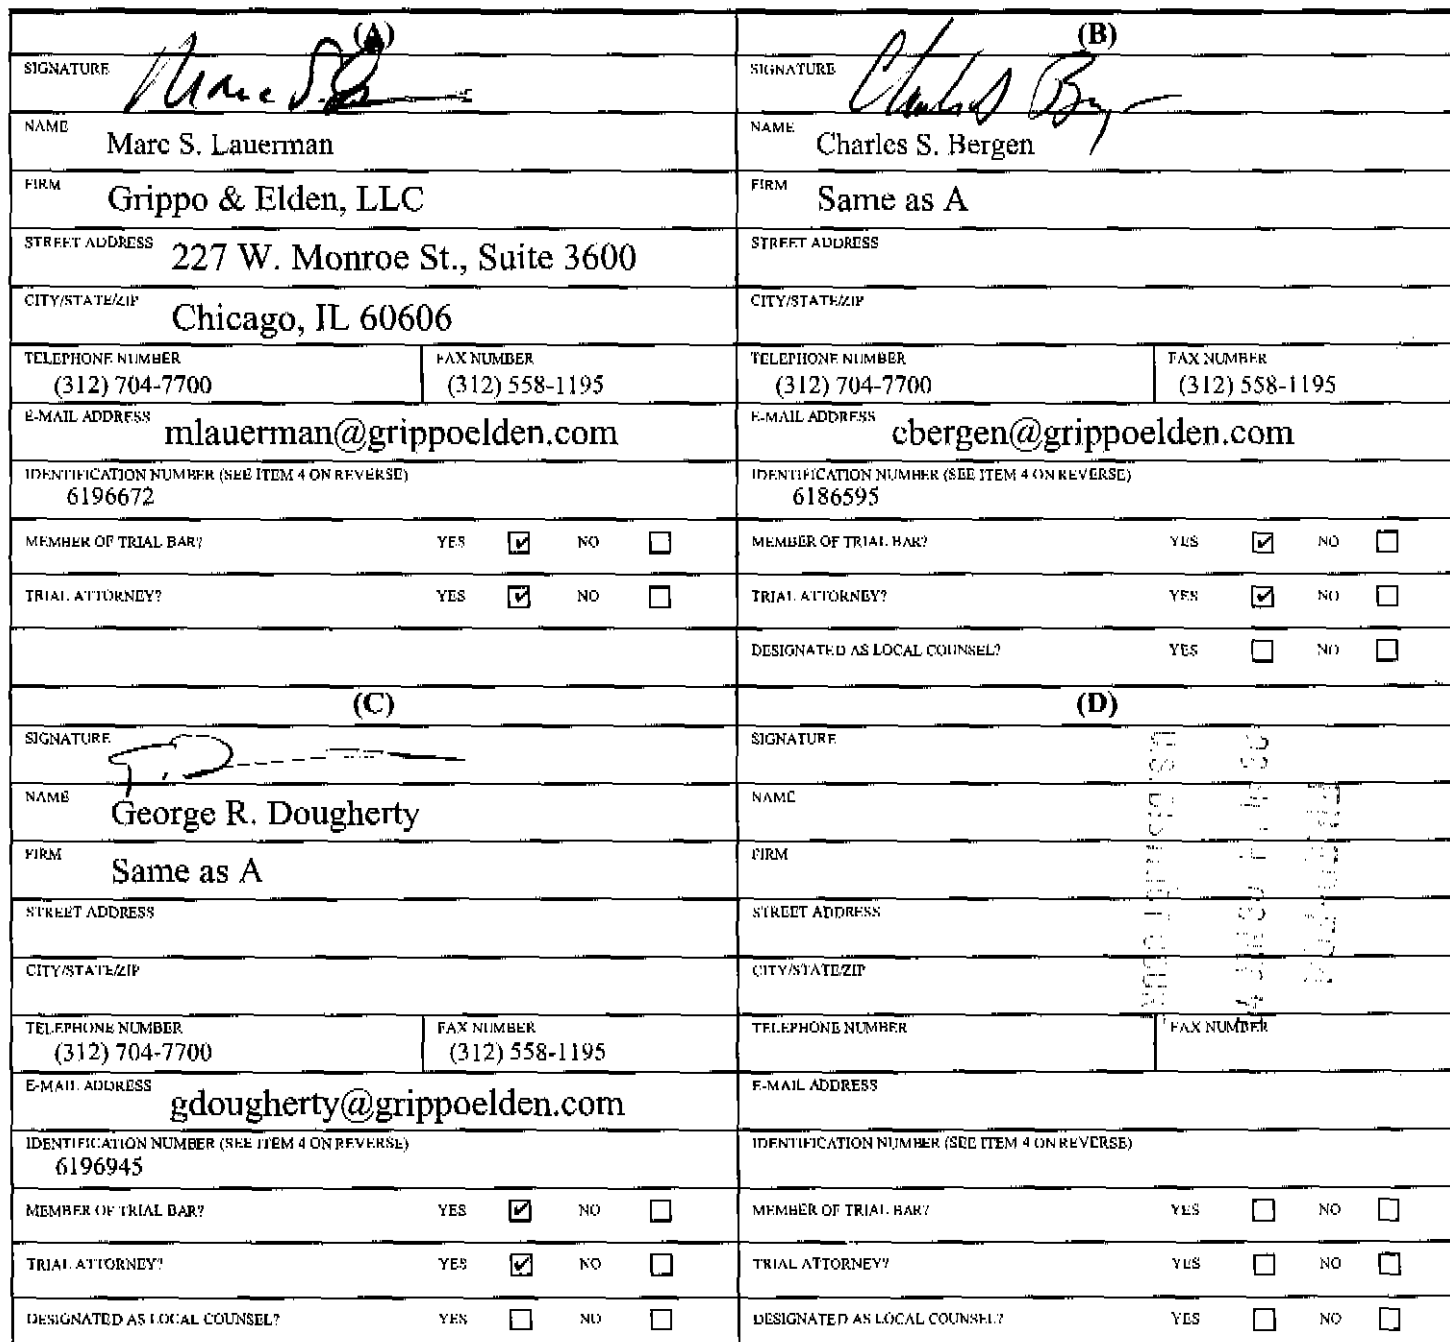 (A)
SIGNATURE
NAME Marc S. Lauerman
FIRM Grippo & Elden, LLC
STREET ADDRESS 227 W. Monroe St., Suite 3600
CITY/STATE/ZIP Chicago, IL 60606
TELEPHONE NUMBER (312) 704-7700
FAX NUMBER (312) 558-1195
E-MAIL ADDRESS mlauerman@grippoelden.com
IDENTIFICATION NUMBER (SEE ITEM 4 ON REVERSE)
6196672
MEMBER OF TRIAL BAR? YES ☑ NO ☐
TRIAL ATTORNEY? YES ☑ NO ☐
(B)
SIGNATURE
NAME Charles S. Bergen
FIRM Same as A
STREET ADDRESS
CITY/STATE/ZIP
TELEPHONE NUMBER (312) 704-7700
FAX NUMBER (312) 558-1195
E-MAIL ADDRESS cbergen@grippoelden.com
IDENTIFICATION NUMBER (SEE ITEM 4 ON REVERSE)
6186595
MEMBER OF TRIAL BAR? YES ☑ NO ☐
TRIAL ATTORNEY? YES ☑ NO ☐
DESIGNATED AS LOCAL COUNSEL? YES ☐ NO ☐
(C)
SIGNATURE
NAME George R. Dougherty
FIRM Same as A
STREET ADDRESS
CITY/STATE/ZIP
TELEPHONE NUMBER (312) 704-7700
FAX NUMBER (312) 558-1195
E-MAIL ADDRESS gdougherty@grippoelden.com
IDENTIFICATION NUMBER (SEE ITEM 4 ON REVERSE)
6196945
MEMBER OF TRIAL BAR? YES ☑ NO ☐
TRIAL ATTORNEY? YES ☑ NO ☐
DESIGNATED AS LOCAL COUNSEL? YES ☐ NO ☐
(D)
SIGNATURE
NAME
FIRM
STREET ADDRESS
CITY/STATE/ZIP
TELEPHONE NUMBER
FAX NUMBER
E-MAIL ADDRESS
IDENTIFICATION NUMBER (SEE ITEM 4 ON REVERSE)
MEMBER OF TRIAL BAR? YES ☐ NO ☐
TRIAL ATTORNEY? YES ☐ NO ☐
DESIGNATED AS LOCAL COUNSEL? YES ☐ NO ☐